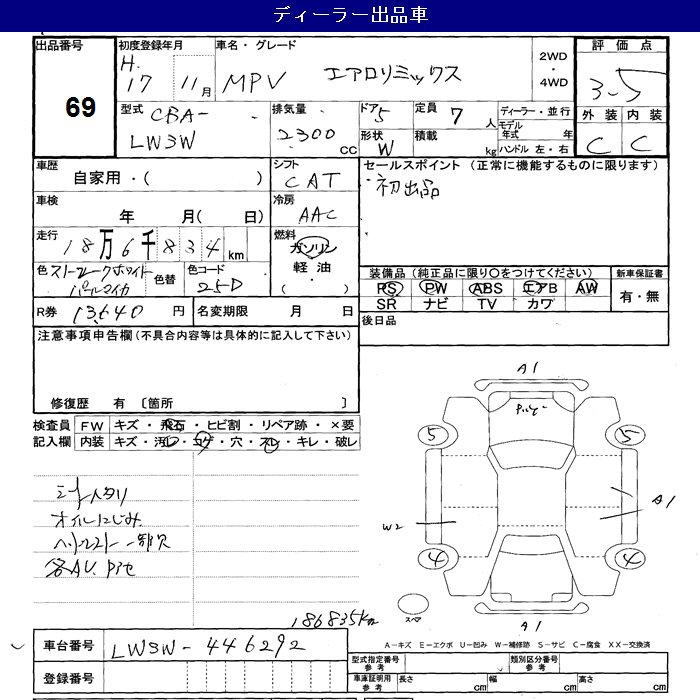 ディーラー出品車
出品番号
69
初度登録年月
H.
17 11月
車名・グレード
MPV エアロリミックス
2WD
・
4WD
評価点
3.5
外装 内装
C C
型式 CBA-
LW3W
排気量
2300 CC
ドア 5
形状 W
定員 7 人
積載 kg
ディーラー・並行
モデル年式 年
ハンドル 左・右
車歴
自家用・( )
車検
年 月( 日)
走行
18万6千834 km
色 ストラトークホワイト
パールマイカ
色替
色コード
25D
シフト
CAT
冷房
AAC
燃料
ガソリン
軽油・
( )
セールスポイント (正常に機能するものに限ります)
初出品
装備品 (純正品に限り○をつけてください)
PS PW ABS エアB AW
SR ナビ TV カワ
新車保証書
有・無
R券 13,640 円
名変期限 月 日
後日品
注意事項申告欄(不具合内容等は具体的に記入して下さい)
修復歴 有 〔箇所 〕
検査員
記入欄
FW キズ・飛石・ヒビ割・リペア跡・×要
内装 キズ・汚レ・コゲ・穴・スレ・キレ・破レ
オイルにじみ
186835km
A1
5 5
W2
A1
4 4
スペア
A1
A-キズ E-エクボ U-凹み W-補修跡 S-サビ C-腐食 XX-交換済
車台番号 LW3W-446292
登録番号
型式指定番号
参考
類別区分番号
参考
車庫証明用
参考
長さ cm 幅 cm 高さ cm